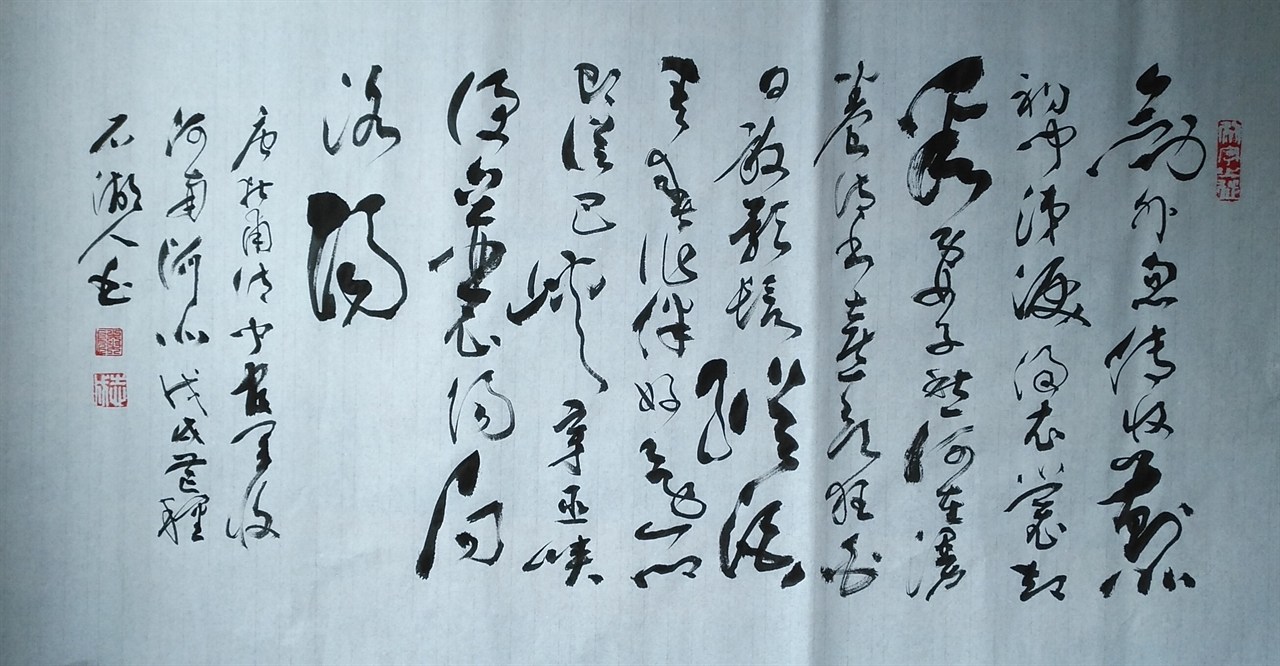 劍外忽傳收薊北
初聞涕淚滿衣裳卻
看妻子愁何在漫
卷詩書喜欲狂白
日放歌須縱酒
青春作伴好還鄉
即從巴峽穿巫峽
便下襄陽向
洛陽
唐杜甫詩聞官軍收
河南河北戊戌芒種
石湖人書